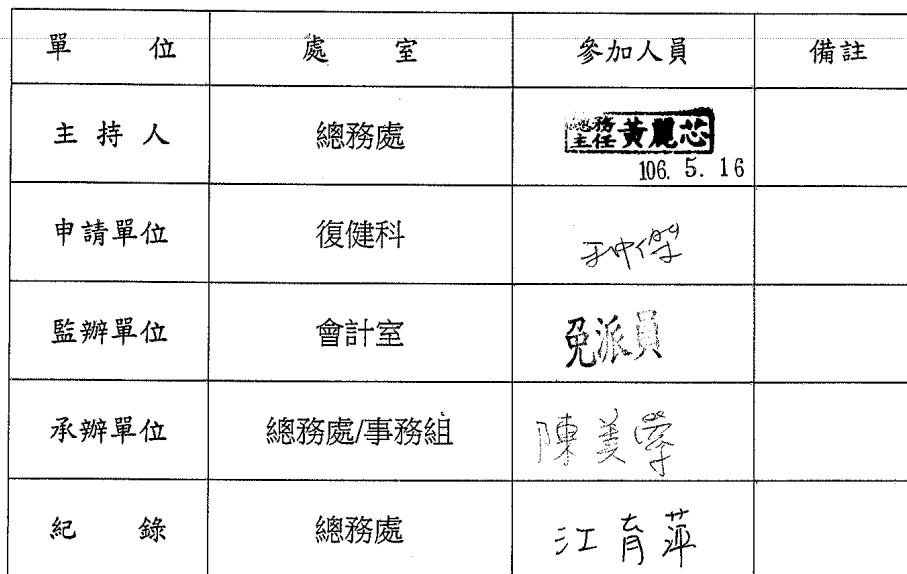 單 位 處 室 參加人員 備註
主 持 人 總務處 總務主任 黃麗芯
106. 5. 16
申請單位 復健科
監辦單位 會計室 免派員
承辦單位 總務處/事務組 陳美
紀 錄 總務處 江育萍